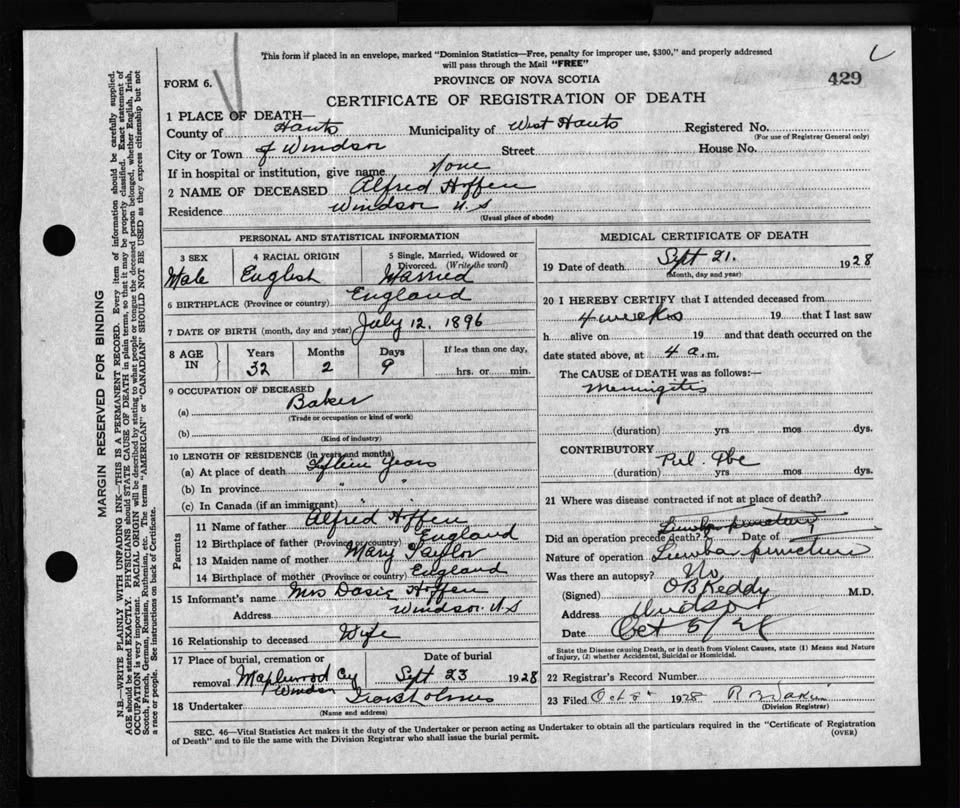 This form if placed in an envelope, marked "Dominion Statistics—Free, penalty for improper use, $300," and properly addressed
will pass through the Mail "FREE"
FORM 6.
PROVINCE OF NOVA SCOTIA
429
CERTIFICATE OF REGISTRATION OF DEATH
1 PLACE OF DEATH—
County of Hants Municipality of West Hants Registered No.
(For use of Registrar General only)
City or Town of Windsor Street House No.
If in hospital or institution, give name None
2 NAME OF DECEASED Alfred Hoffen
Residence Windsor N.S
(Usual place of abode)
PERSONAL AND STATISTICAL INFORMATION
3 SEX 4 RACIAL ORIGIN 5 Single, Married, Widowed or
Divorced. (Write the word)
Male English Married
6 BIRTHPLACE (Province or country) England
7 DATE OF BIRTH (month, day and year) July 12, 1896
8 AGE IN Years Months Days If less than one day,
32 2 9 hrs. or min.
9 OCCUPATION OF DECEASED
(a) Baker
(Trade or occupation or kind of work)
(b)
(Kind of industry)
10 LENGTH OF RESIDENCE (in years and months)
(a) At place of death Fifteen Years
(b) In province " "
(c) In Canada (if an immigrant) " "
Parents
11 Name of father Alfred Hoffen
12 Birthplace of father (Province or country) England
13 Maiden name of mother Mary Taylor
14 Birthplace of mother (Province or country) England
15 Informant's name Mrs Hoffen
Address Windsor. N.S
16 Relationship to deceased Wife
17 Place of burial, cremation or Date of burial
removal Maplewood Cy Sept 23 1928
Windsor
18 Undertaker
(Name and address)
MEDICAL CERTIFICATE OF DEATH
19 Date of death Sept 21. 1928
(Month, day and year)
20 I HEREBY CERTIFY that I attended deceased from
4 weeks 19 that I last saw
h alive on 19 and that death occurred on the
date stated above, at 4 a.m.
The CAUSE of DEATH was as follows:—
Meningitis
(duration) yrs mos dys.
CONTRIBUTORY Pul. Tbc
(duration) yrs. mos. dys.
21 Where was disease contracted if not at place of death?
Lumbar puncture
Did an operation precede death? Date of
Nature of operation Lumbar puncture
Was there an autopsy? No
(Signed) O B Keddy M.D.
Address Windsor
Date Oct 5/28
State the Disease causing Death, or in death from Violent Causes, state (1) Means and Nature
of Injury, (2) whether Accidental, Suicidal or Homicidal.
22 Registrar's Record Number
23 Filed Oct 8" 1928
(Division Registrar)
SEC. 46—Vital Statistics Act makes it the duty of the Undertaker or person acting as Undertaker to obtain all the particulars required in the "Certificate of Registration
of Death" and to file the same with the Division Registrar who shall issue the burial permit.
(OVER)
MARGIN RESERVED FOR BINDING
N.B.—WRITE PLAINLY WITH UNFADING INK—THIS IS A PERMANENT RECORD. Every item of information should be carefully supplied.
AGE should be stated EXACTLY. PHYSICIANS should STATE CAUSE OF DEATH in plain terms, so that it may be properly classified. Exact statement of
OCCUPATION is very important. RACIAL ORIGIN will be described by stating to what people or tongue the deceased person belonged, whether English, Irish,
Scotch, French, German, Russian, Ruthenian, etc. The terms "AMERICAN" or "CANADIAN" SHOULD NOT BE USED as they express citizenship but not
a race or people. See instructions on back of Certificate.